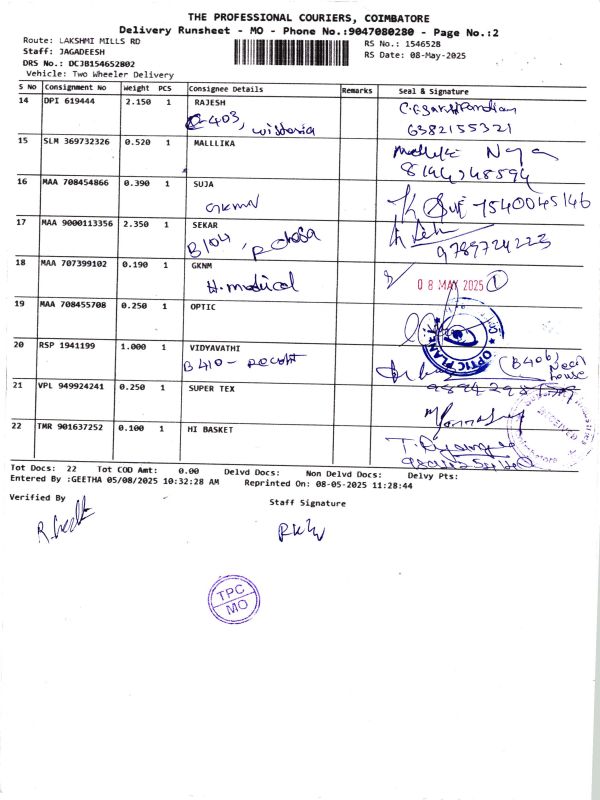 THE PROFESSIONAL COURIERS, COIMBATORE
Delivery Runsheet - MO - Phone No.:9047080280 - Page No.:2
Route: LAKSHMI MILLS RD
RS No.: 1546528
Staff: JAGADEESH
RS Date: 08-May-2025
DRS No.: DCJB154652802
Vehicle: Two Wheeler Delivery
S No Consignment No Weight PCS Consignee Details Remarks Seal & Signature
14 DPI 619444 2.150 1 RAJESH
C-403, wistoria
6382155321
15 SLM 369732326 0.520 1 MALLLIKA
16 MAA 708454866 0.390 1 SUJA
GKNM
7540045146
17 MAA 9000113356 2.350 1 SEKAR
B104,
9789724223
18 MAA 707399102 0.190 1 GKNM
H. medical
08 MAY 2025 1
19 MAA 708455708 0.250 1 OPTIC
OPTIC PLANET
20 RSP 1941199 1.000 1 VIDYAVATHI
B410-
(B406)
house
21 VPL 949924241 0.250 1 SUPER TEX
RECEIVED
22 TMR 901637252 0.100 1 HI BASKET
Tot Docs: 22 Tot COD Amt: 0.00 Delvd Docs: Non Delvd Docs: Delvy Pts:
Entered By :GEETHA 05/08/2025 10:32:28 AM Reprinted On: 08-05-2025 11:28:44
Verified By
Staff Signature
TPC
MO